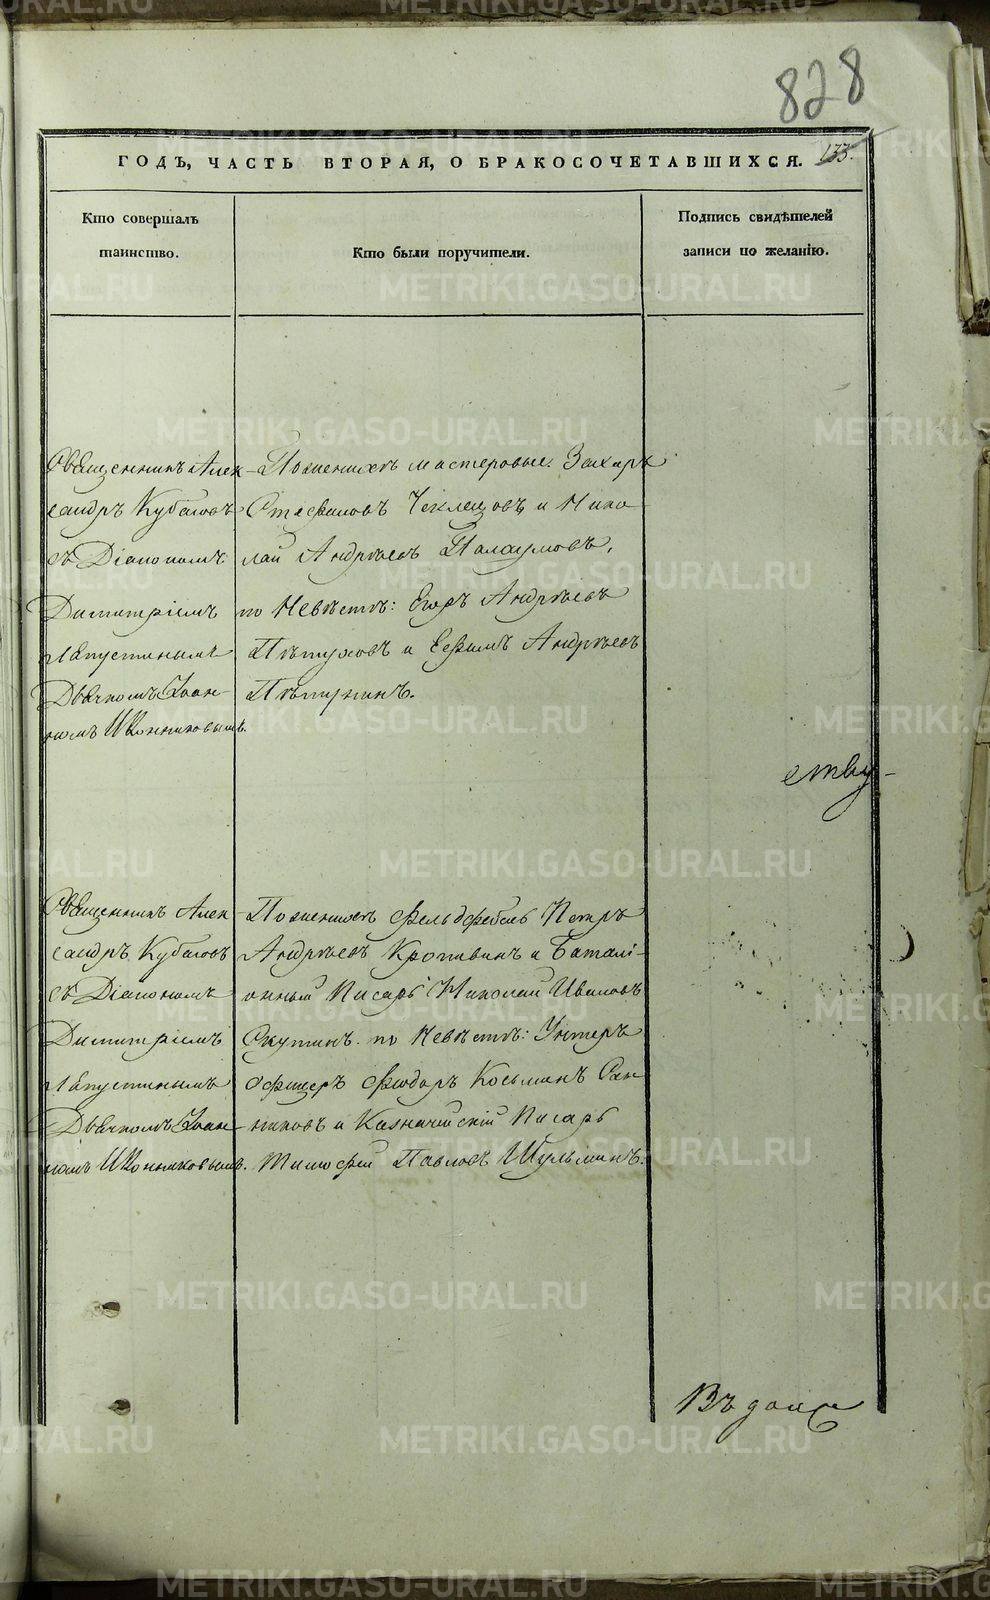 828
ГОДЪ, ЧАСТЬ ВТОРАЯ, О БРАКОСОЧЕТАВШИХСЯ. 133.
Кто совершалъ
таинство.
Кто были поручители.
Подпись свидѣтелей
записи по желанію.
Священникъ Алек-
сандръ Кубасовъ
съ Діакономъ
Димитріемъ
Дьячкомъ Іоан-
номъ Иконниковымъ.
По женихѣ мастеровые: Захаръ
Стефановъ Чеклецовъ и Нико-
лай Андреевъ
по Невѣстѣ: Егоръ Андреевъ
Пѣтуховъ и Ефимъ Андреевъ
Пѣтунинъ.
ству-
Священникъ Алек-
сандръ Кубасовъ
съ Діакономъ
Димитріемъ
Дьячкомъ Іоан-
номъ Иконниковымъ.
По женихѣ фельдфебель Петръ
Андреевъ Кропивинъ и Баталі-
онный Писарь Николай Ивановъ
Скутинъ. по Невѣстѣ: Унтеръ
Офицеръ Фёдоръ Косьминъ Сан-
никовъ и Казначейскій Писарь
Тимофей Павловъ Шульминъ.
Въ
METRIKI.GASO-URAL.RU